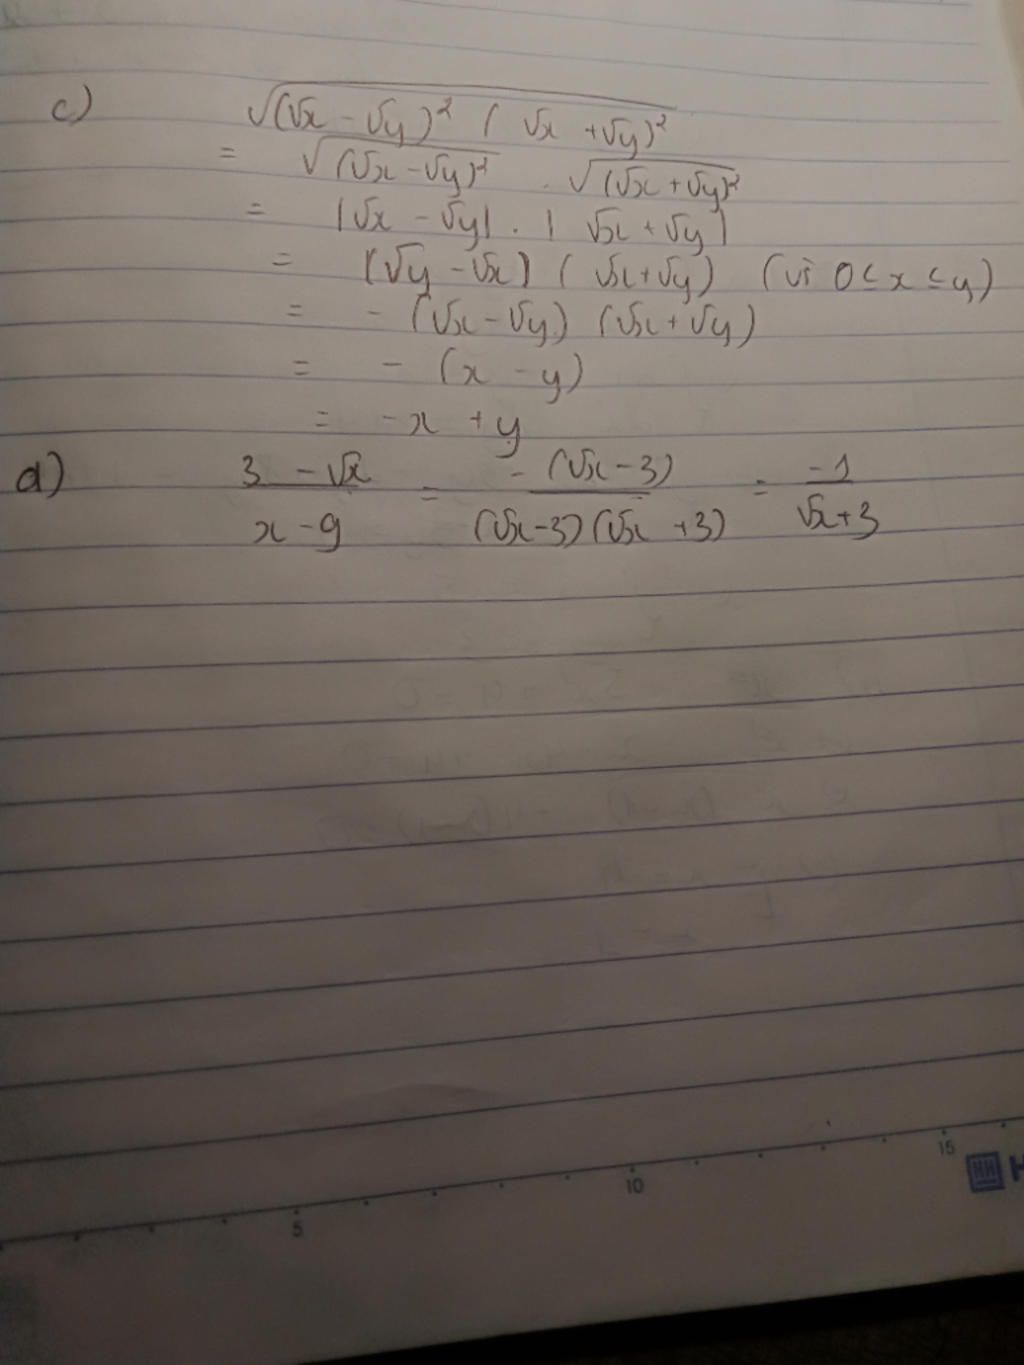 c) √((√x - √y)² (√x + √y)²)
= √((√x - √y)²) . √((√x + √y)²)
= |√x - √y| . |√x + √y|
= (√y - √x) (√x + √y) (vì 0 ≤ x ≤ y)
= - (√x - √y) (√x + √y)
= - (x - y)
= -x + y
d) (3 - √x)/(x - 9) = -(√x - 3)/((√x - 3)(√x + 3)) = -1/(√x + 3)
5 10 15 HH H